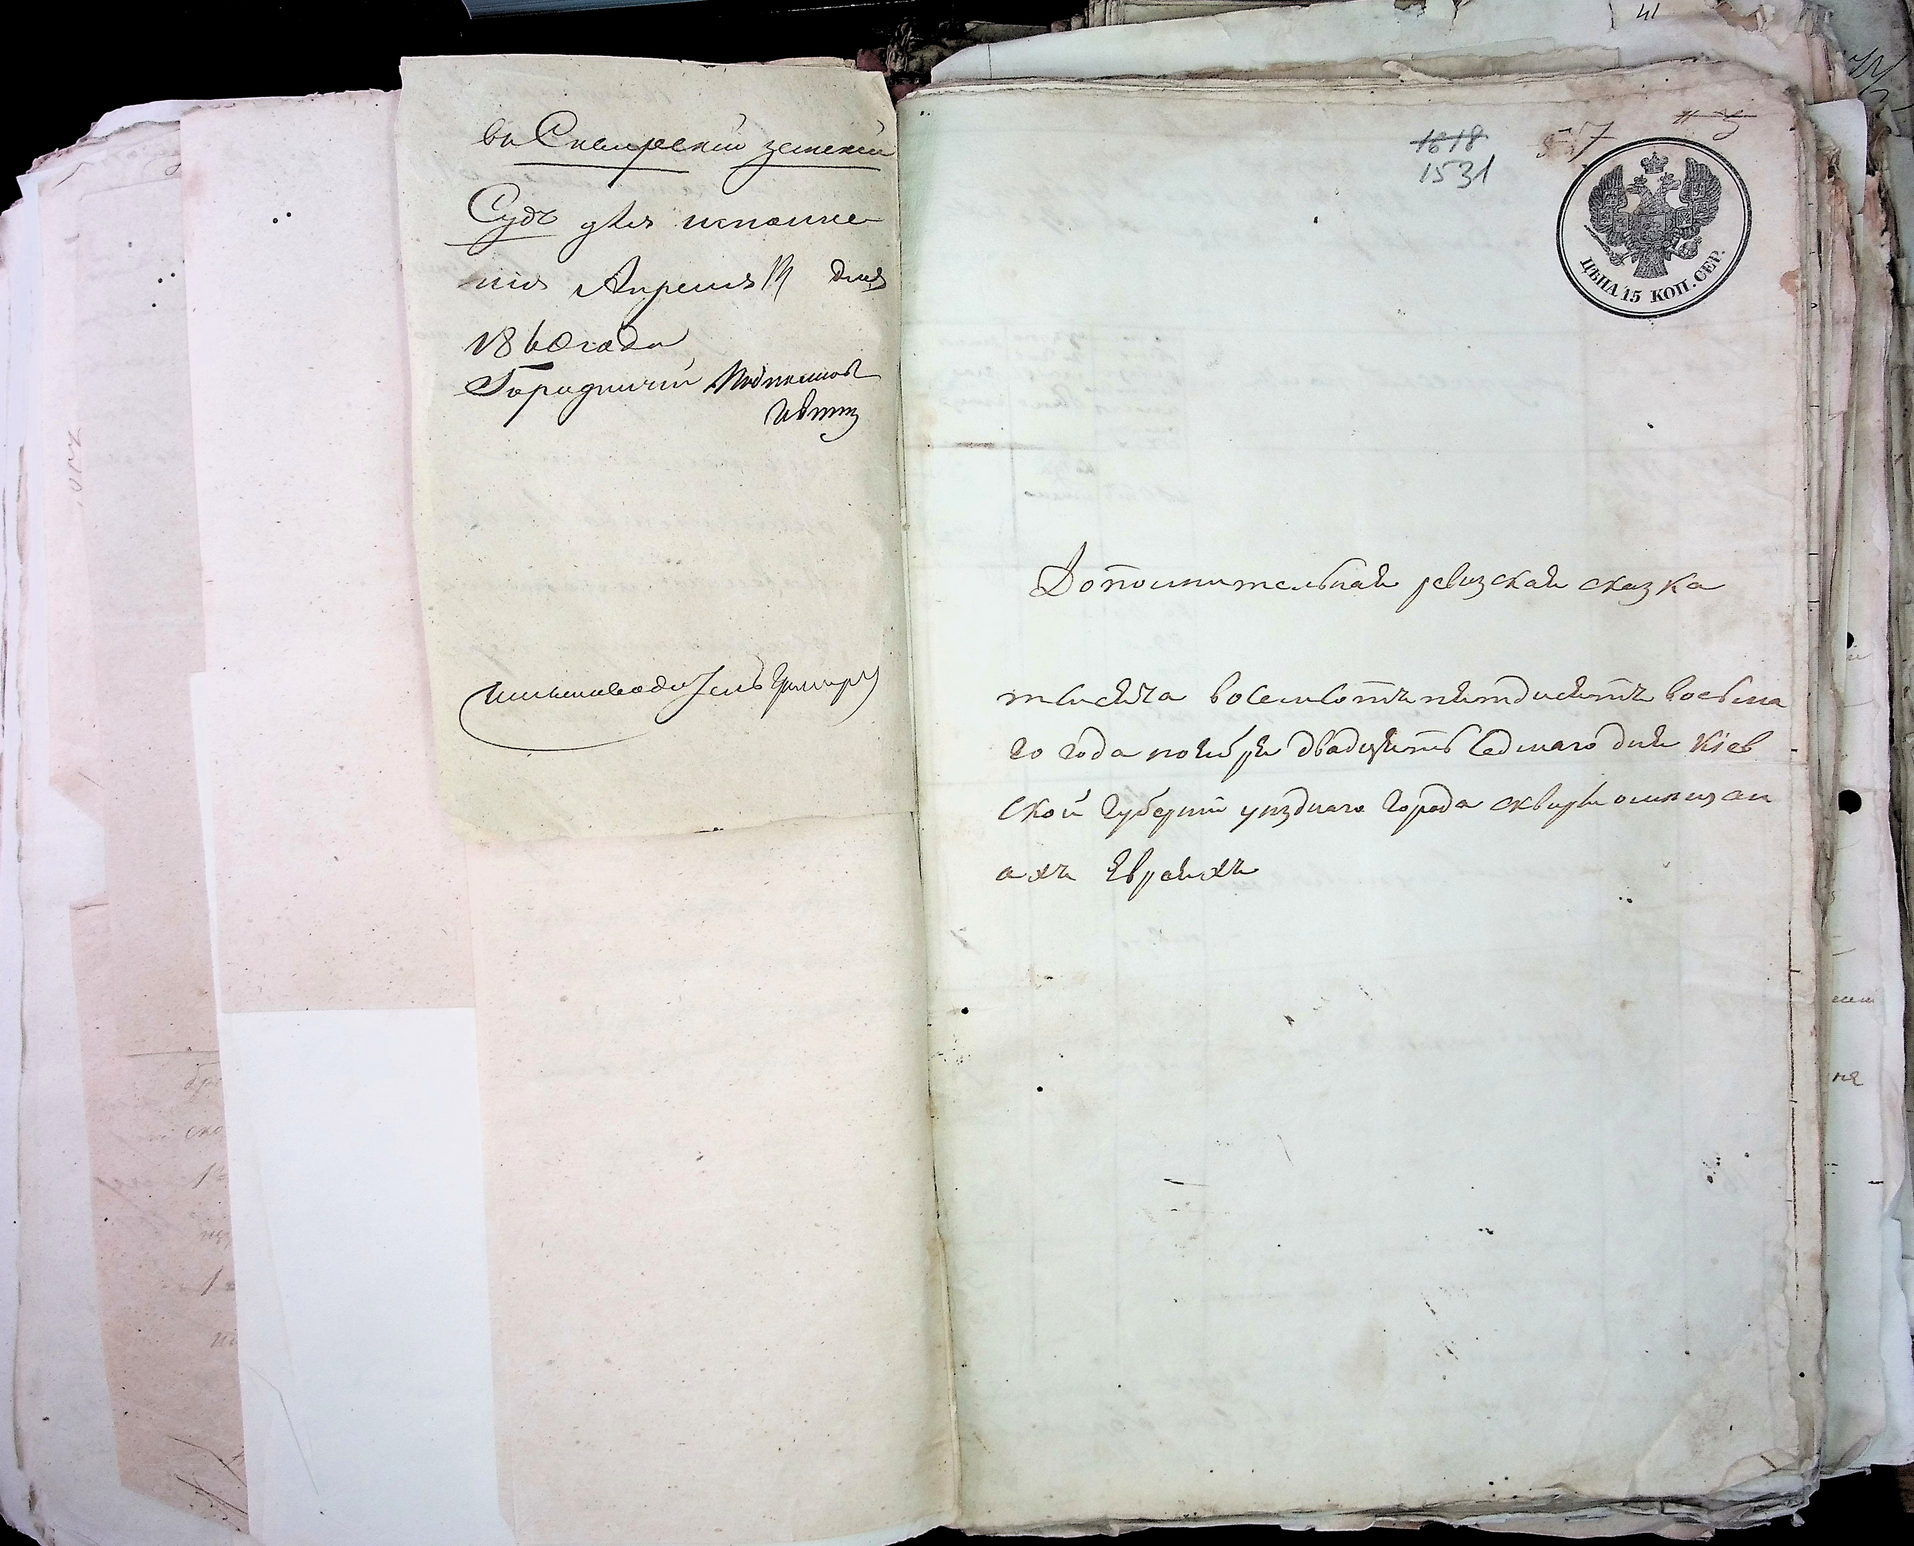 въ Сквирскій земскій
Судъ для исполне
нія Апреля 14 дня
1860 года
Городничій
41
1618
1531
557
ЦѢНА 15 КОП. СЕР.
Дополнительная ревизская сказка
тысяча восемсотъ пятдисятъ восьма
го года ноября двадцять седмаго дня Кіев
ской Губерніи уезднаго города сквиры о мѣщан
ахъ Евреяхъ